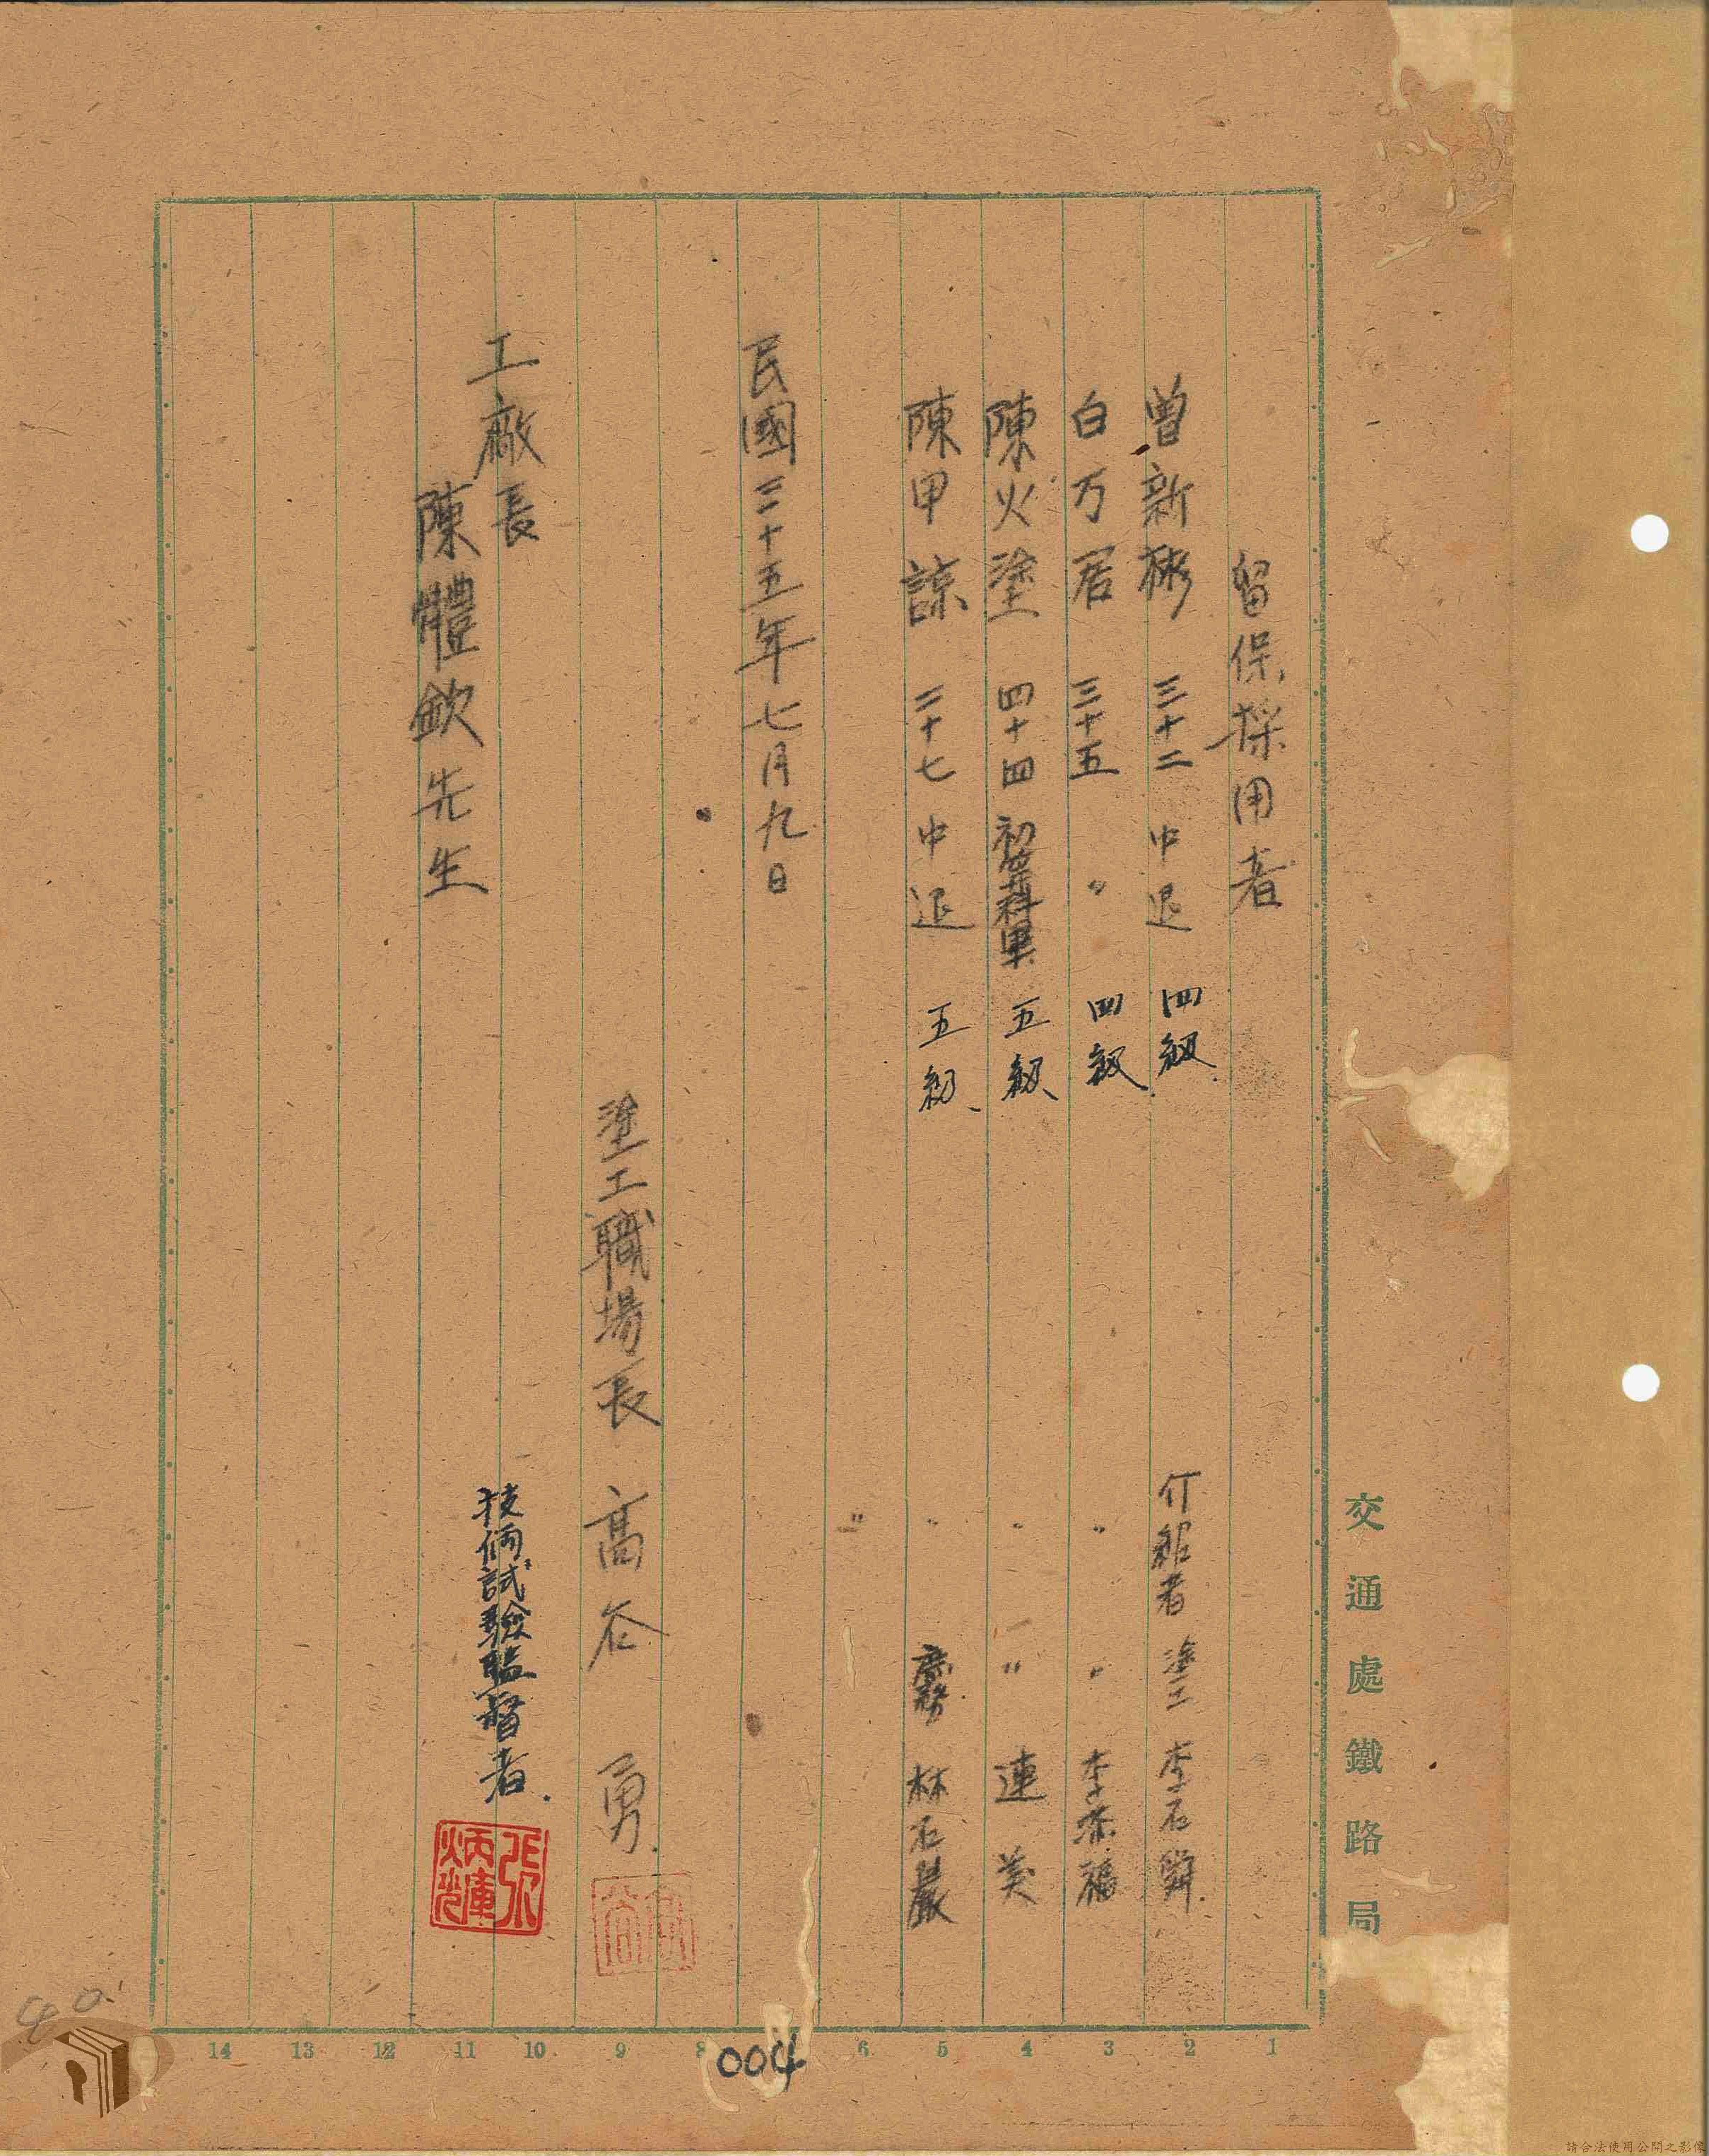 交通處鐵路局
留保採用者
曾新彬 三十二 中退 四級 介紹者 塗工 李石舜
白万居 三十五 〃 四級 〃 〃 李添福
陳火塗 四十四 初等科畢 五級 〃 〃 連美
陳甲諒 二十七 中退 五級 〃 庶務 林石嚴
〃
民國三十五年七月九日
塗工職場長 髙谷 勇
工廠長
陳體欽先生
技倆試驗監督者
張炳輝
1 2 3 4 5 6 8 9 10 11 12 13 14
004
40
請合法使用公開之影像